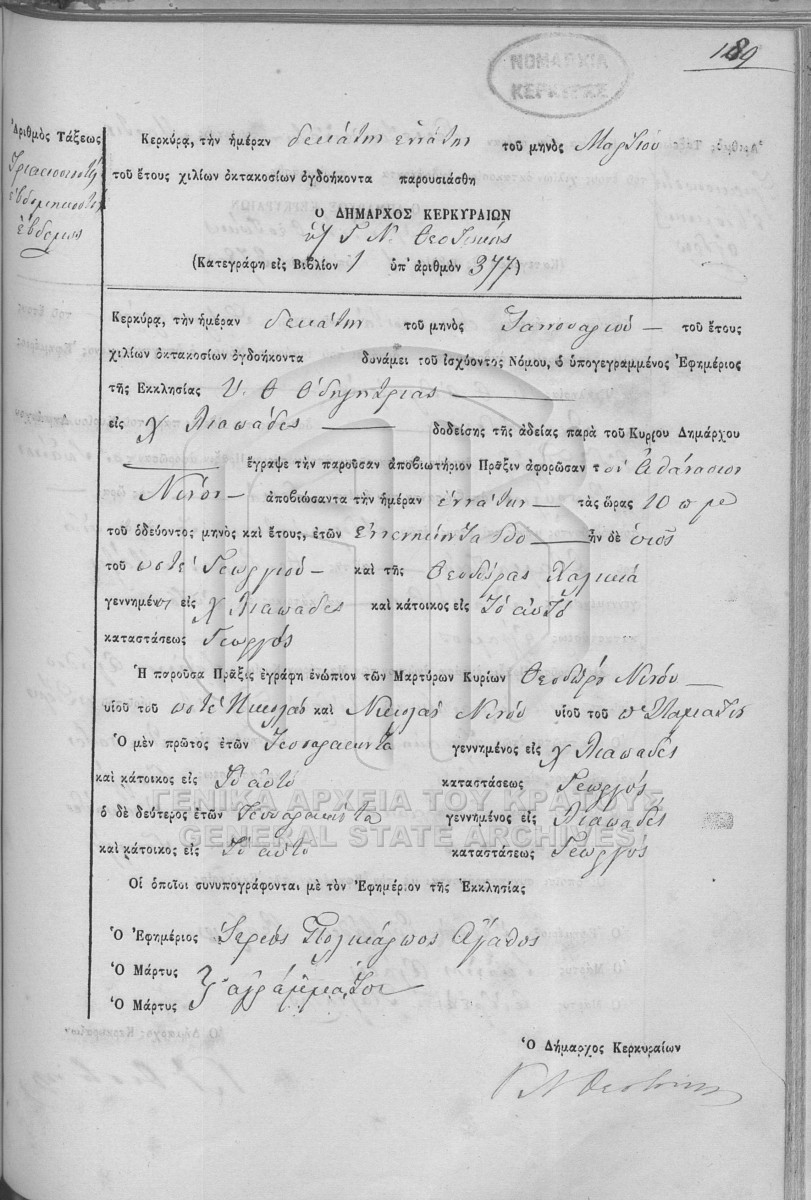 189
ΝΟΜΑΡΧΙΑ
ΚΕΡΚΥΡΑΣ
Ἀριθμὸς Τάξεως
Τριακοσιοστή
ἑβδομηκοστή
ἑβδομη
Κερκύρα, τὴν ἡμέραν δεκάτην ἐννάτην τοῦ μηνὸς Μαρτίου
τοῦ ἔτους χιλίων ὀκτακοσίων ὀγδοήκοντα παρουσιάσθη
Ὁ ΔΗΜΑΡΧΟΣ ΚΕΡΚΥΡΑΙΩΝ
Γ Ν. Θεοτόκης
(Κατεγράφη εἰς Βιβλίον 1 ὑπ' ἀριθμὸν 377)
Κερκύρα, τὴν ἡμέραν δεκάτην τοῦ μηνὸς Ἰανουαρίου τοῦ ἔτους
χιλίων ὀκτακοσίων ὀγδοήκοντα δυνάμει τοῦ ἰσχύοντος Νόμου, ὁ ὑπογεγραμμένος Ἐφημέριος
τῆς Ἐκκλησίας Υ. Θ Ὁδηγητρίας
εἰς χ Λιαπάδες δοθείσης τῆς ἀδείας παρὰ τοῦ Κυρίου Δημάρχου
ἔγραψε τὴν παροῦσαν ἀποβιωτήριον Πρᾶξιν ἀφορῶσαν τὸν Ἀθανάσιον
Νινον ἀποβιώσαντα τὴν ἡμέραν ἐννάτην τὰς ὥρας 10 π με
τοῦ ὁδεύοντος μηνὸς καὶ ἔτους, ἐτῶν ἐννενήντα δύο ἦν δὲ υἱὸς
τοῦ ποτὲ Γεωργίου καὶ τῆς Θεοδώρας Χαλικιά
γεννημένη εἰς χ Λιαπάδες καὶ κάτοικος εἰς Τὸ αὐτό
καταστάσεως Γεωργός
Ἡ παροῦσα Πρᾶξις ἐγράφη ἐνώπιον τῶν Μαρτύρων Κυρίων Θεοδώρου Νινου
υἱοῦ τοῦ ποτὲ Νικολάου καὶ Νικολάου Νινου υἱοῦ τοῦ π Σταματίου
Ὁ μὲν πρῶτος ἐτῶν Τεσσαρακοντα γεννημένος εἰς χ Λιαπάδες
καὶ κάτοικος εἰς Τὸ αὐτό καταστάσεως Γεωργός
ὁ δὲ δεύτερος ἐτῶν Τεσσαρακοντα γεννημένος εἰς Λιαπάδες
καὶ κάτοικος εἰς Τὸ αὐτό καταστάσεως Γεωργός
ΓΕΝΙΚΑ ΑΡΧΕΙΑ ΤΟΥ ΚΡΑΤΟΥΣ
GENERAL STATE ARCHIVES
Οἱ ὁποῖοι συνυπογράφονται μὲ τὸν Ἐφημέριον τῆς Ἐκκλησίας
Ὁ Ἐφημέριος Ἱερεὺς Πολύκαρπος Ἄγαθος
Ὁ Μάρτυς
Ὁ Μάρτυς ἀγράμματοι
Ὁ Δήμαρχος Κερκυραίων
Γ Ν Θεοτόκης